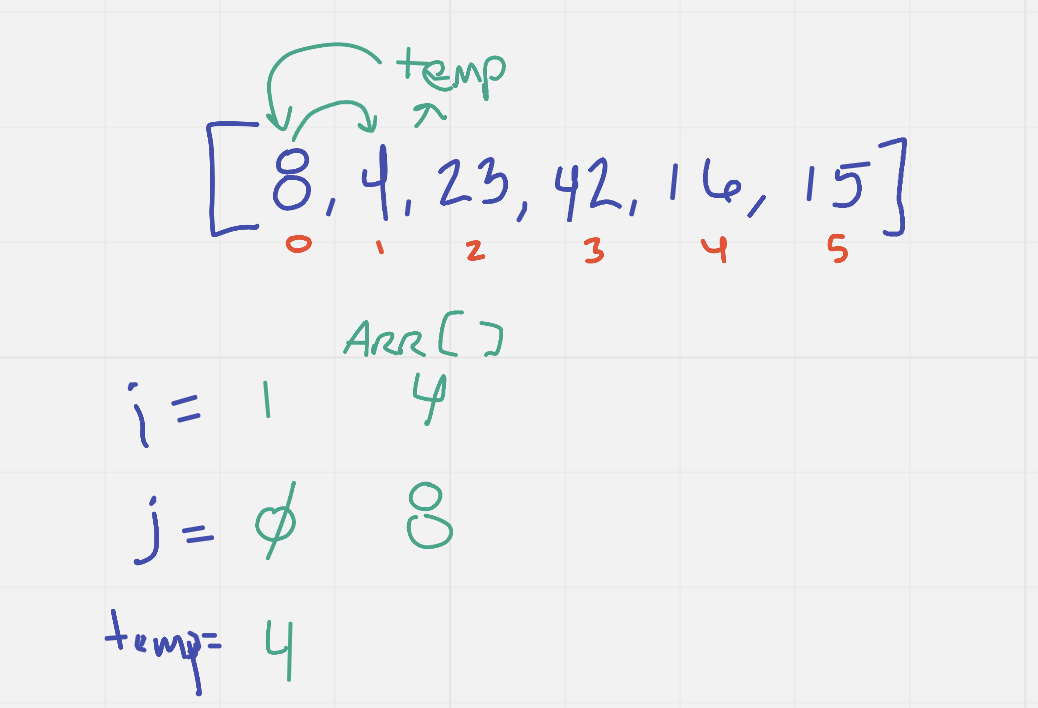 temp
[8, 4, 23, 42, 16, 15]
0 1 2 3 4 5
ARR[]
i = 1 4
j = 0 8
temp= 4